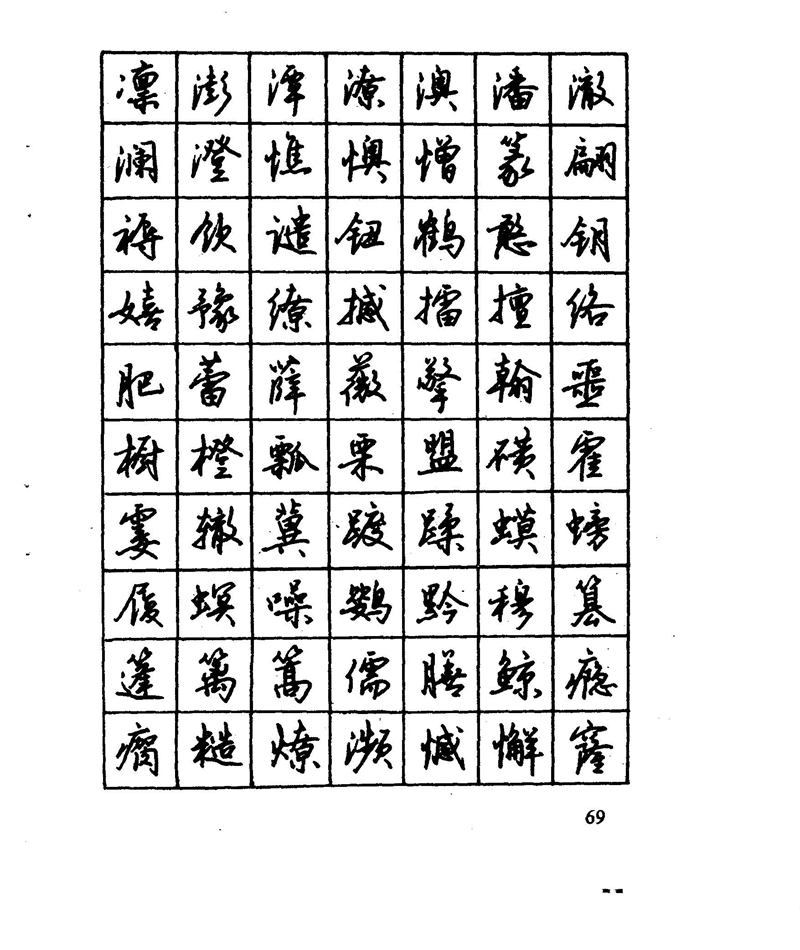 凛 澎 潭 潦 澳 潘 澈
澜 澄 憔 懊 憎 篆 翩
褥 谴 钮 鹤 憨 钥
嬉 豫 缭 撼 擂 擅 络
肥 蕾 薛 薇 擎 翰 噩
橱 橙 瓢 栗 盟 磺 霍
霎 辙 冀 踱 蹂 蟆 螃
履 螟 噪 鹦 黔 穆 篡
篷 篱 篙 儒 膳 鲸 瘾
瘸 糙 燎 濒 憾 懈 窿
69